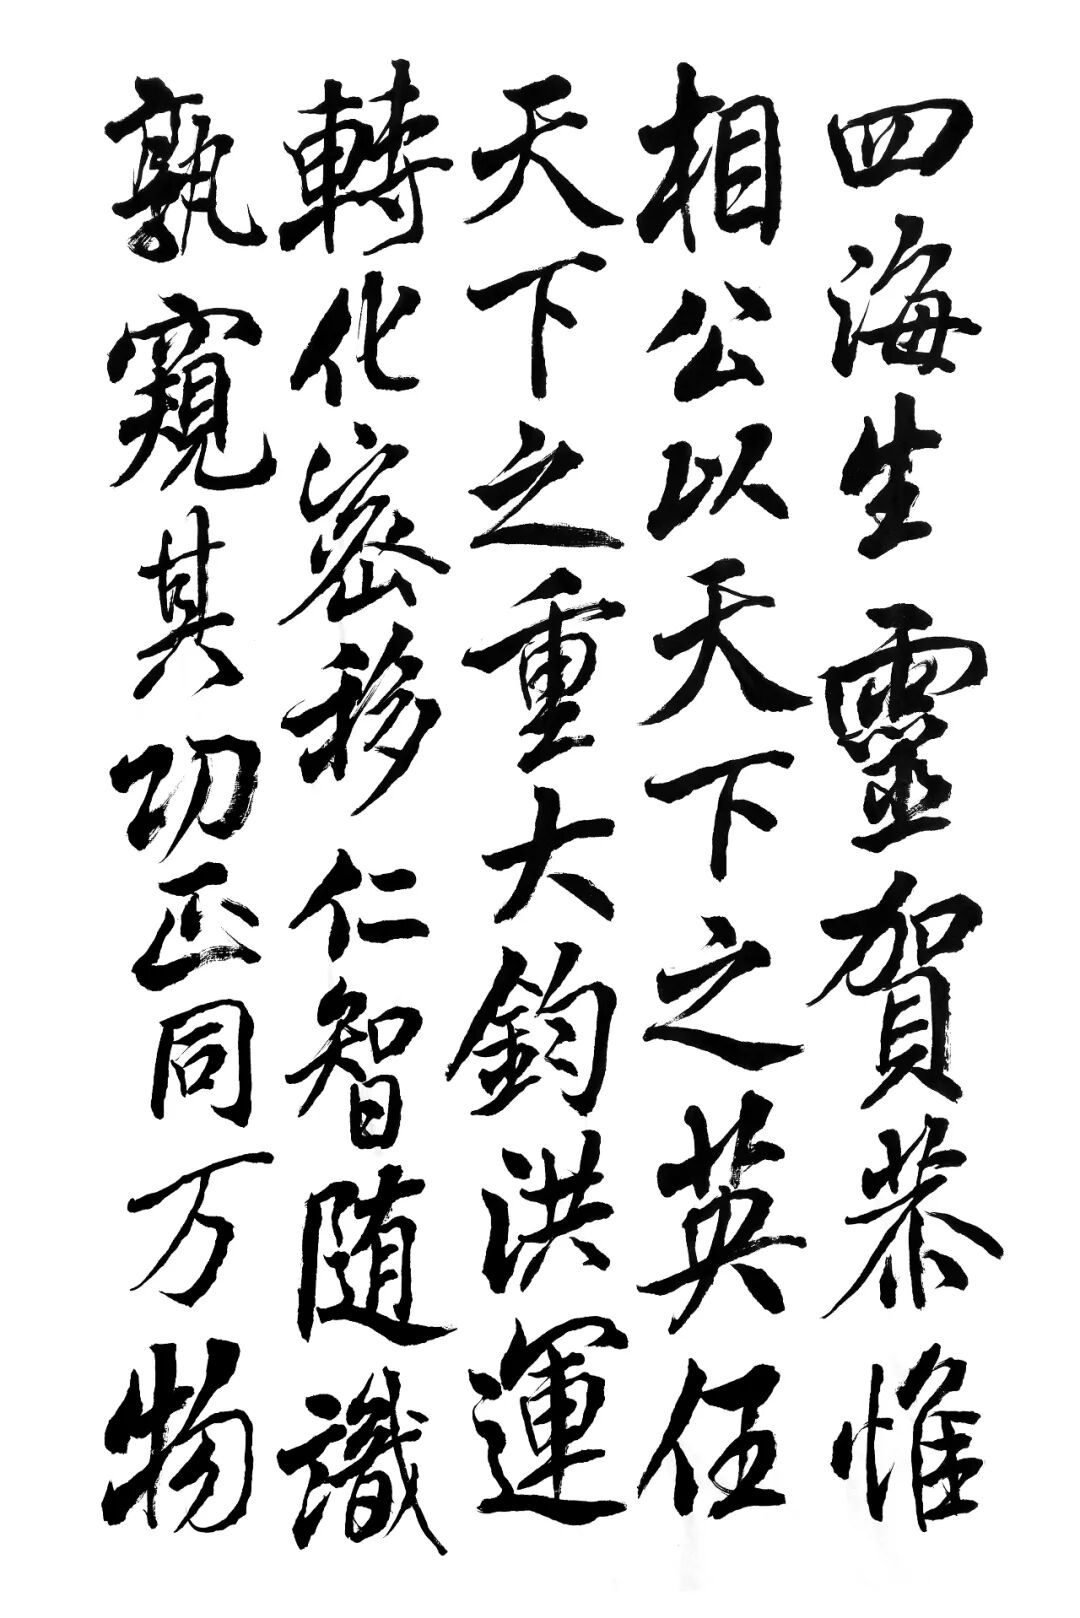 四海生靈賀恭惟
相公以天下之英任
天下之重大鈞洪運
轉化密移仁智随識
孰窺其功正同万物